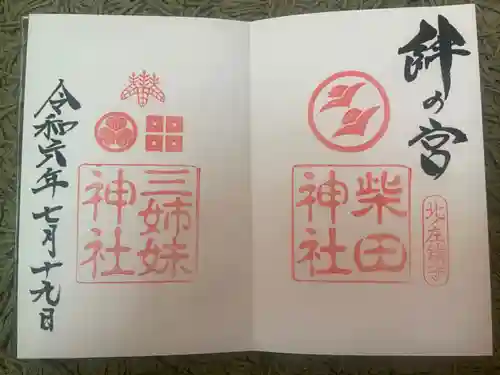 絆の宮
北ノ庄鎮守
柴田
神社
三姉妹
神社
令和六年七月十九日